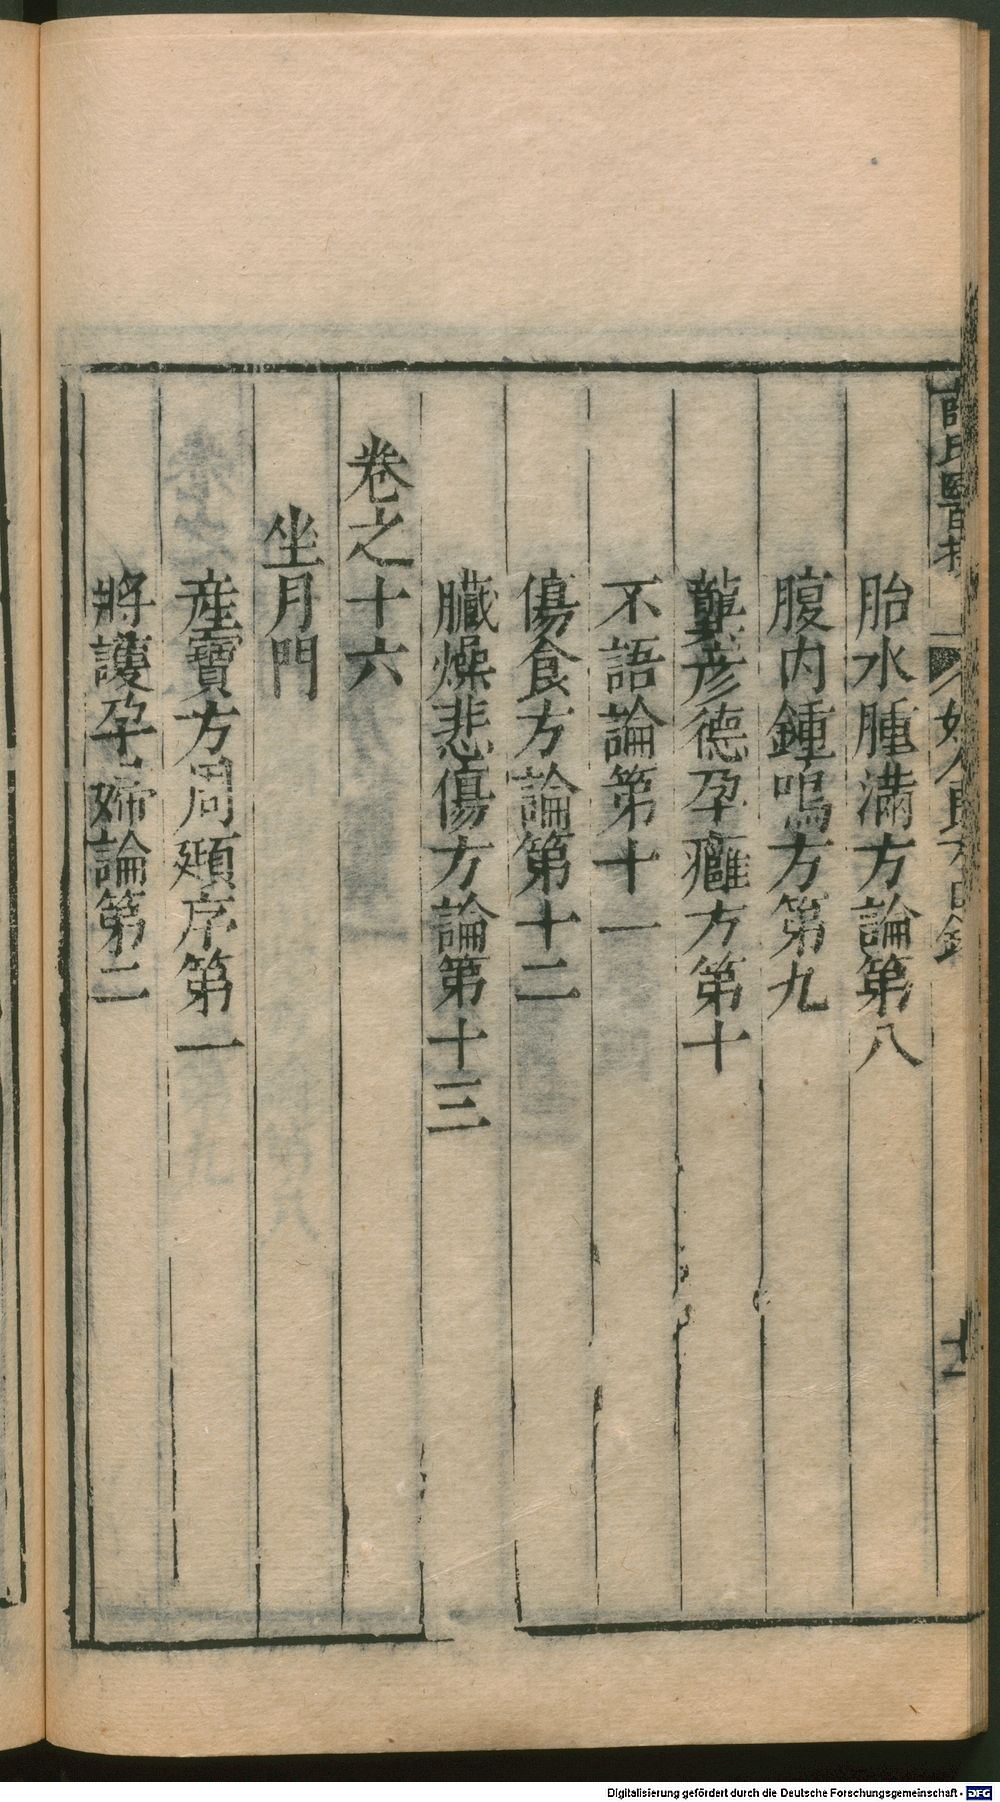 胎水腫滿方論第八
腹内鍾鳴方第九
龔彦德孕癰方第十
不語論第十一
傷食方論第十二
臟燥悲傷方論第十三
卷之十六
坐月門
産寶方周頲序第一
將護孕婦論第二
Digitalisierung gefördert durch die Deutsche Forschungsgemeinschaft - DFG